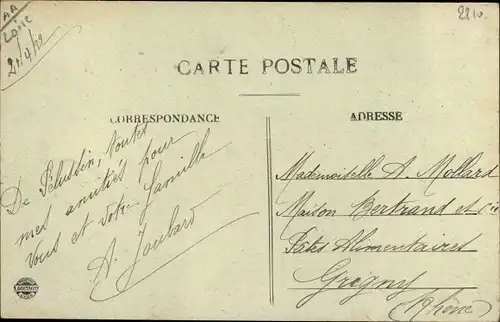 AA
Loire
2210.
CARTE POSTALE
CORRESPONDANCE
ADRESSE
De Pélussin, toutes
mes amitiés pour
vous et votre famille
A. Joubard
Mademoiselle A. Mollard
Maison Bertrand et Cie
Pâtes Alimentaires
Grigny
(Rhône)